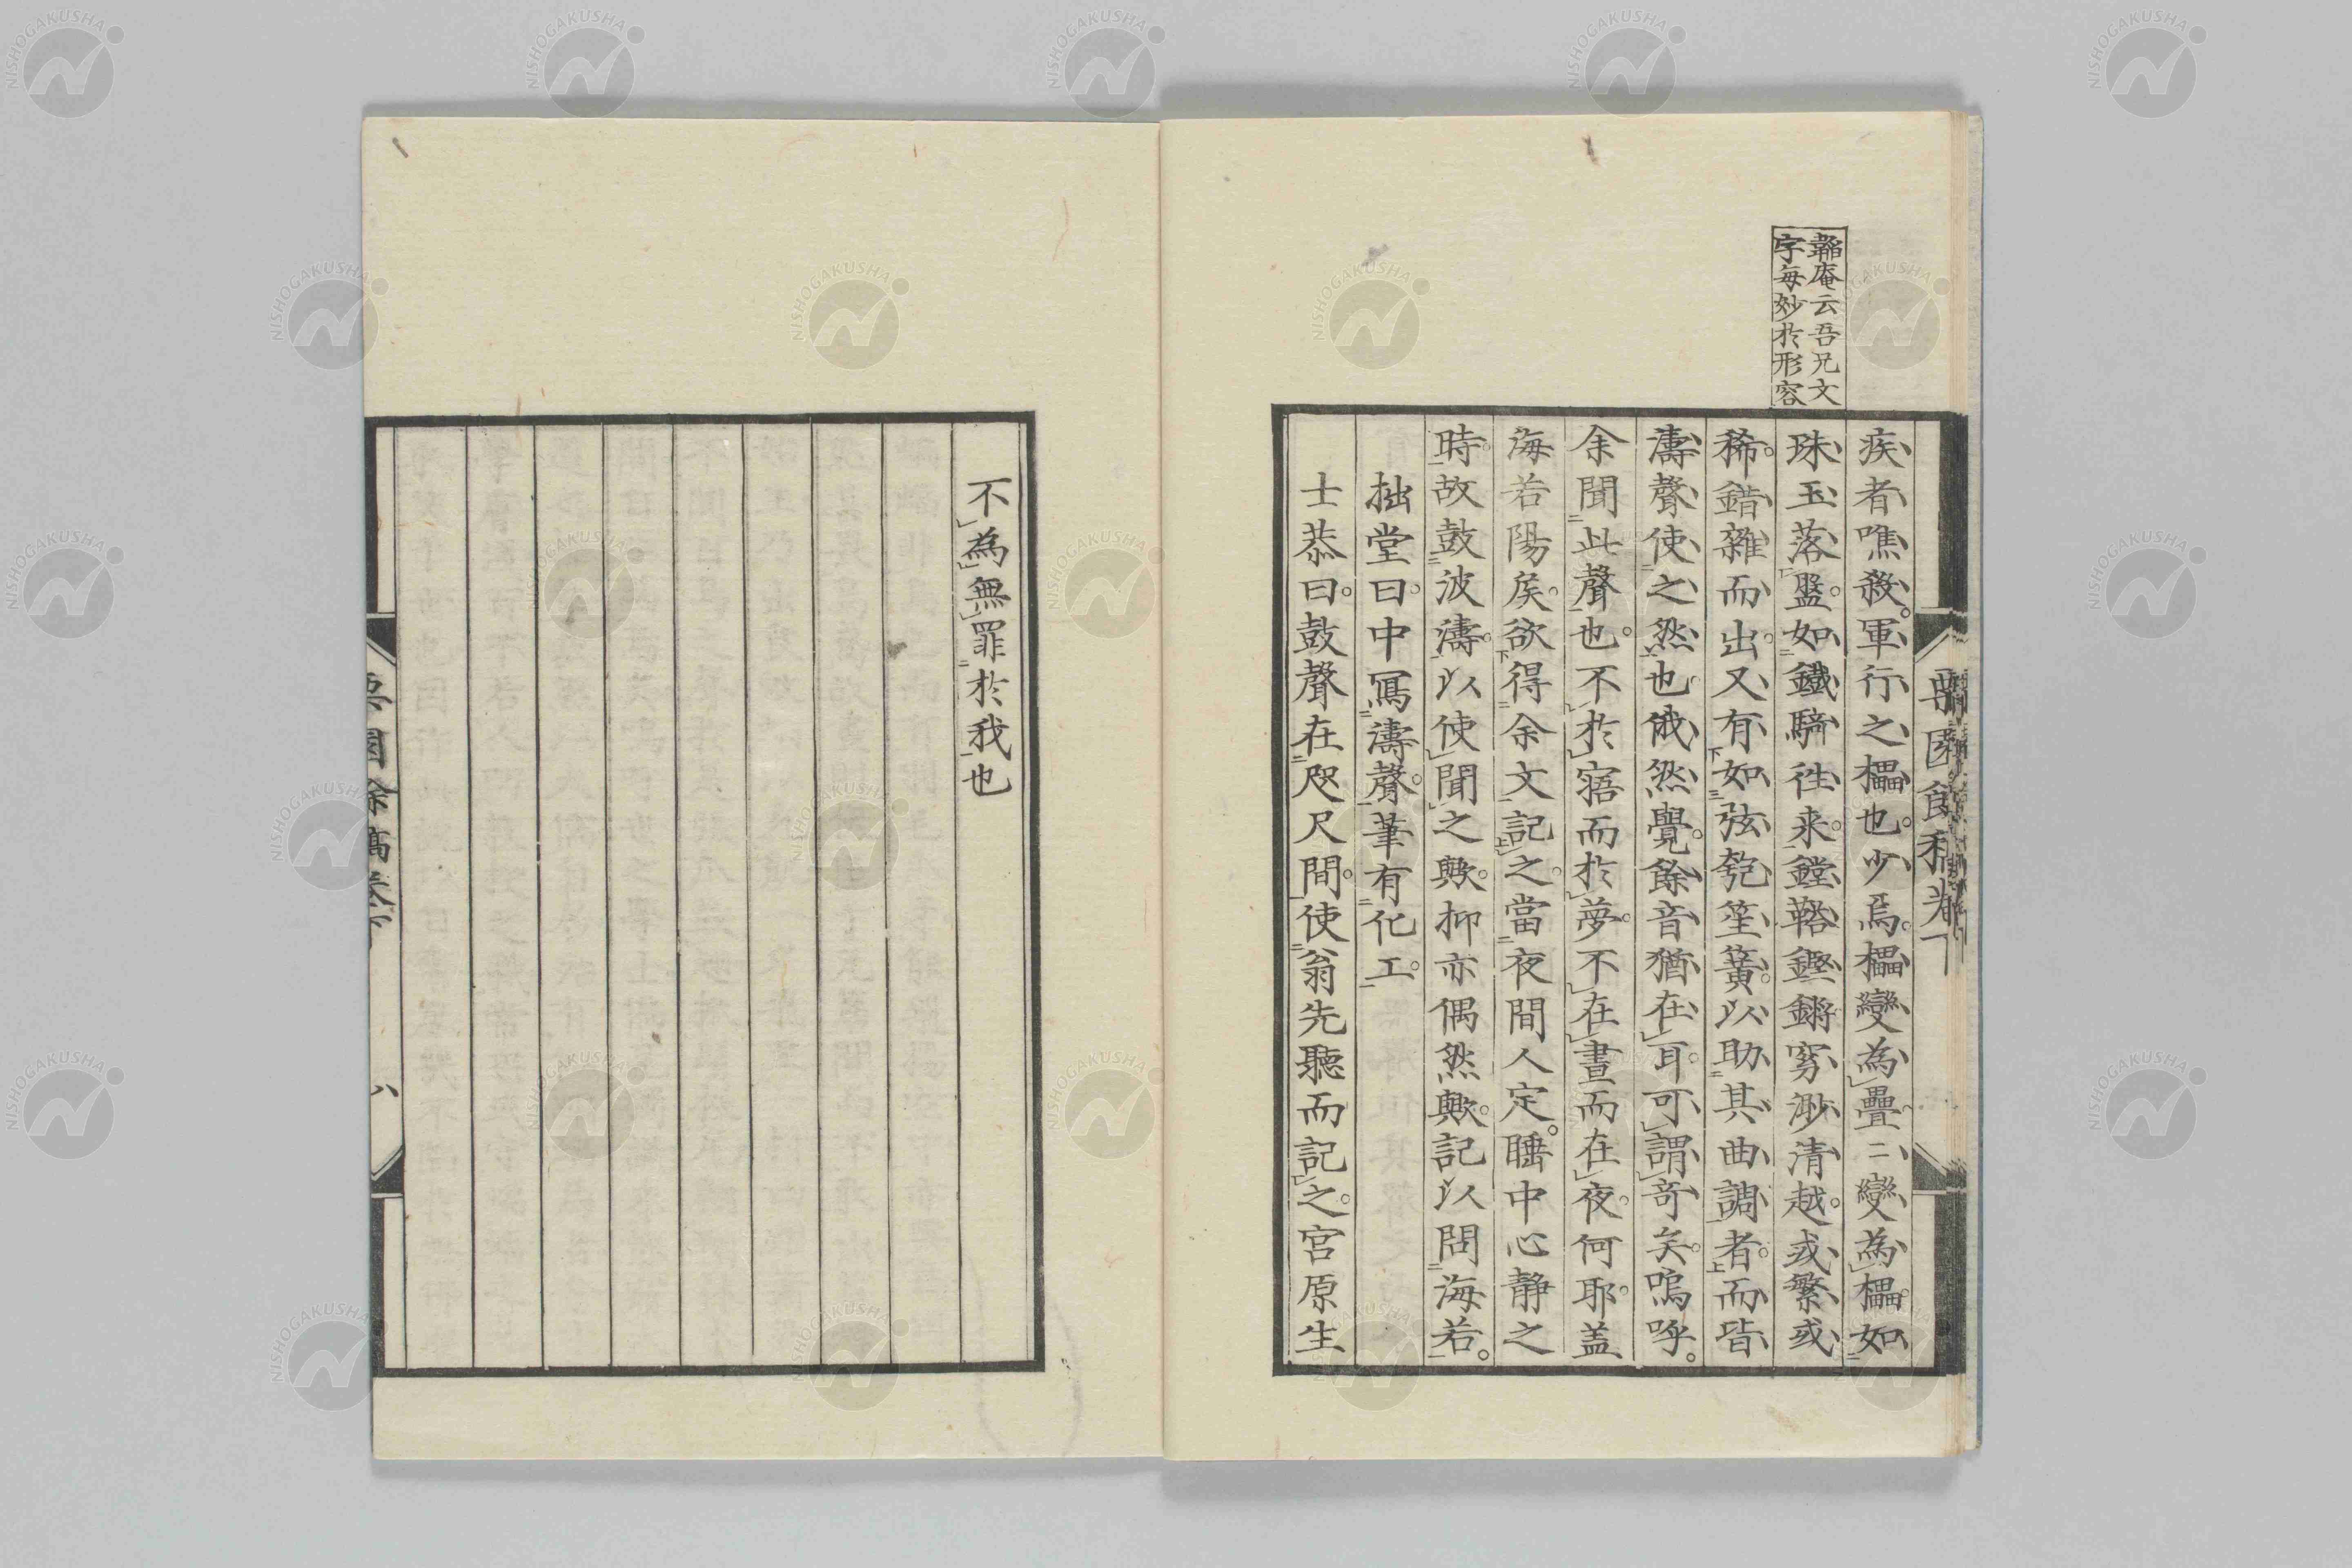 韜庵云吾兄文
字毎妙於形容
疾者噍殺。軍行之櫑也。少焉。櫑變為疊〻變為櫑如
珠玉落盤。如鐵騎往来。鏜鞳鏗鏘寥渺清越。或繁或
稀。錯雜而出。又有如弦匏笙簧。以助其曲調者。而皆
濤聲使之然也俄然覺。餘音猶在耳。可謂奇矣。嗚呼。
余聞此聲也。不於寤而於夢。不在晝而在夜。何耶。盖
海若陽矦。欲得余文記之。當夜間人定。睡中心靜之
時。故鼓波濤。以使聞之歟。抑亦偶然歟。記以問海若。
拙堂曰。中寫濤聲。筆有化工。
士恭曰。鼓聲在咫尺間。使翁先聽而記之。宮原生
不為無罪於我也
園餘稿卷下
八
NISHOGAKUSHA